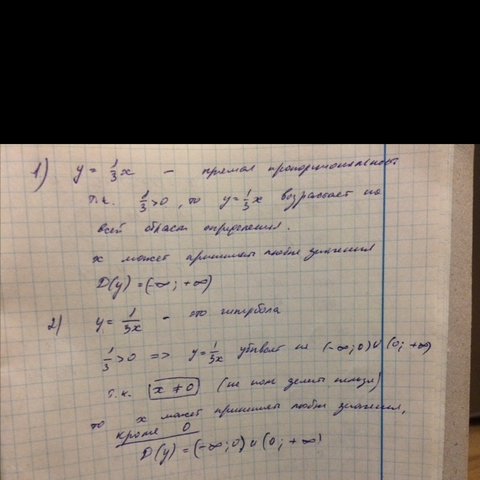 1) y = 1/3 x – прямая пропорциональность
т.к. 1/3 > 0, то y = 1/3 x возрастает на
всей области определения.
x может принимать любые значения
D(y) = (-∞; +∞)
2) y = 1/3x – это гипербола
1/3 > 0 => y = 1/3x убывает на (-∞; 0) ∪ (0; +∞)
т.к. x ≠ 0 (на ноль делить нельзя)
то x может принимать любые значения,
кроме 0
D(y) = (-∞; 0) ∪ (0; +∞)